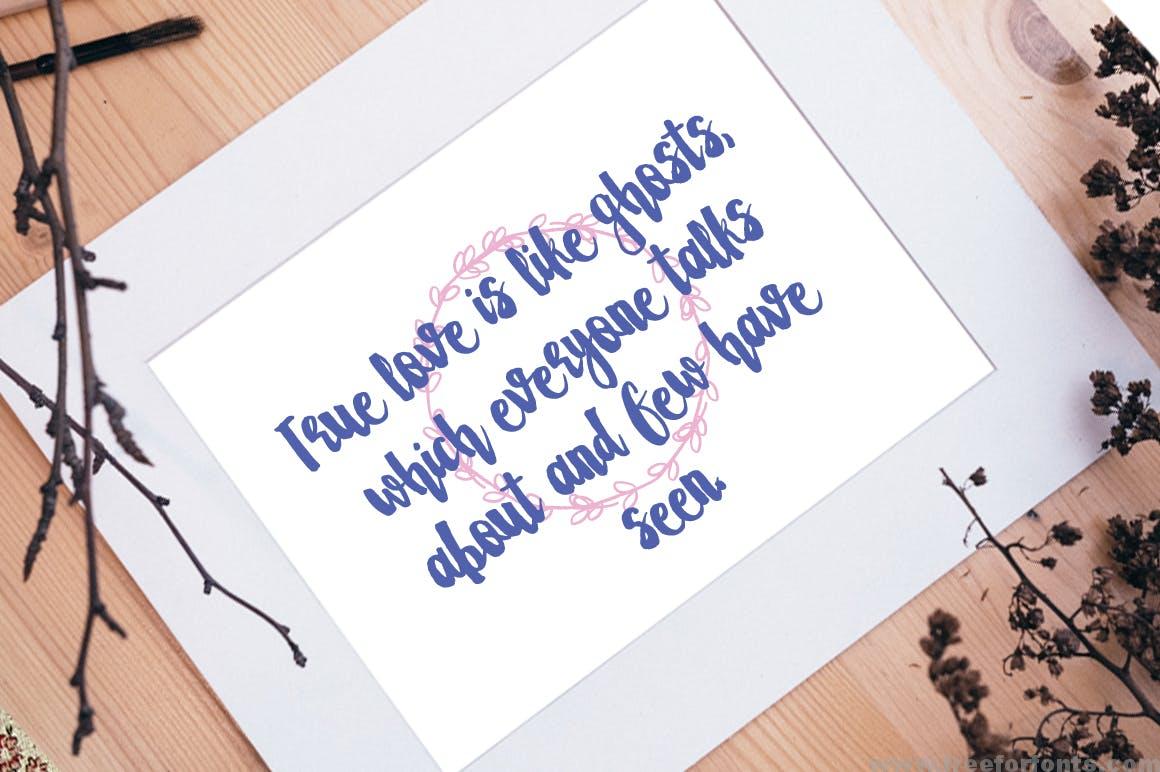 True love is like ghosts,
which everyone talks
about and few have
seen.
www.freeforfonts.com